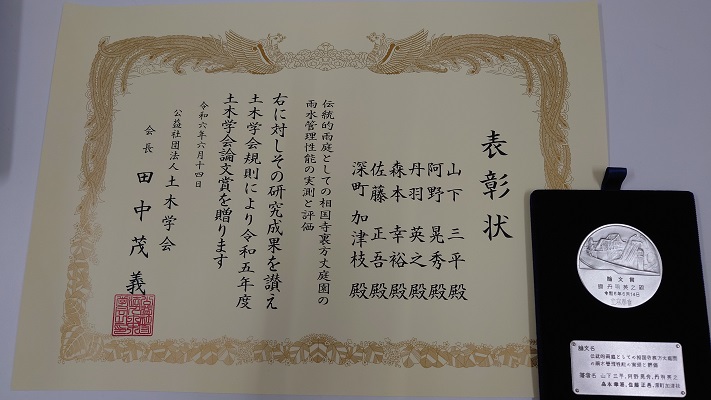 表彰状
山下 三平 殿
阿野 晃秀 殿
丹羽 英之 殿
森本 幸裕 殿
佐藤 正吾 殿
深町 加津枝 殿
伝統的雨庭としての相国寺裏方丈庭園の
雨水管理性能の実測と評価
右に対しその研究成果を讃え
土木学会規則により令和五年度
土木学会論文賞を贈ります
令和六年六月十四日
公益社団法人 土木学会
会長 田中茂義
論文賞
丹羽英之殿
令和6年6月14日
土木学会
論文名
伝統的雨庭としての相国寺裏方丈庭園
の雨水管理性能の実測と評価
著者名 山下三平、阿野晃秀、丹羽英之
森本幸裕、佐藤正吾、深町加津枝